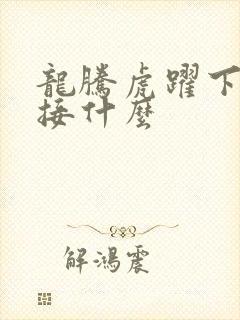 龍騰虎躍下
接什麼
解鴻震